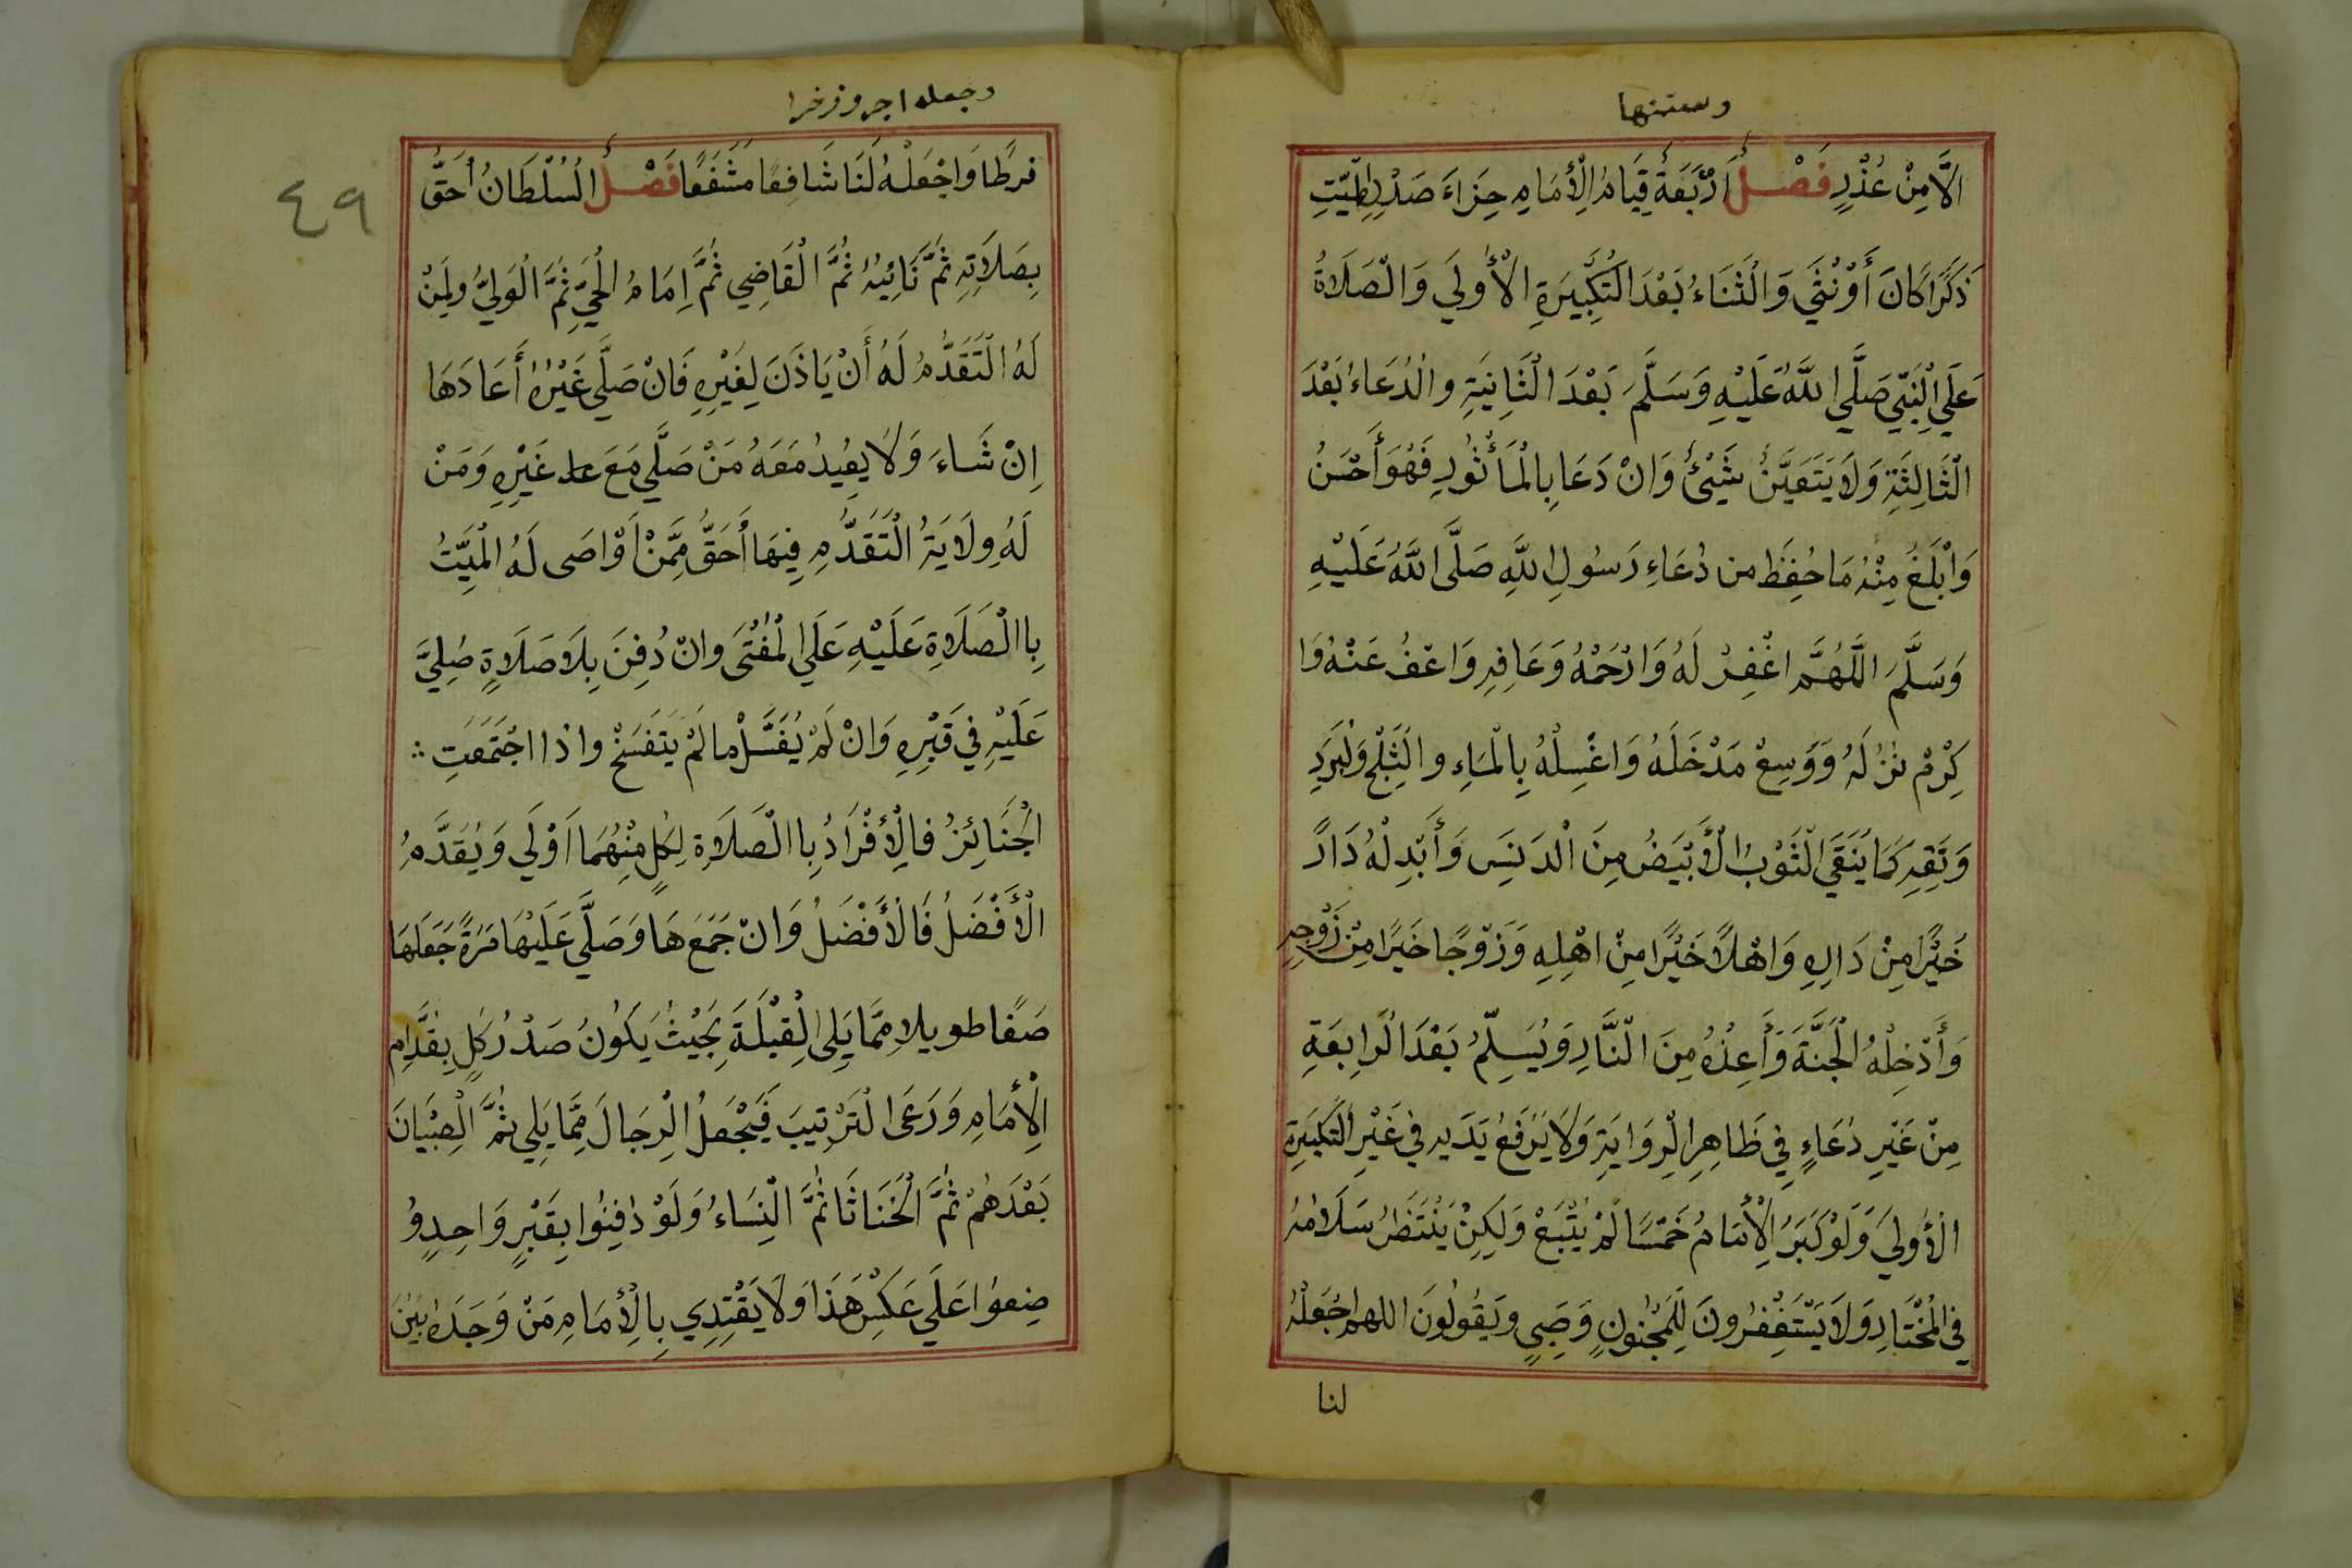 وسننها
الَّا مِنْ عُذْرٍ فَصْلٌ أَرْبَعَةٌ قِيَامُ الْأِمَامِ حِزَاءَ صَدْرِ الْمَيِّتِ
ذَكَرًا كَانَ أَوْ نْثَي وَالثَنَاءُ بَعْدَ التَكْبِيرَةِ الْأُولَي وَالْصَلَاةُ
عَلَي الْنَبِيّ صَلَّي اللَّهُ عَلَيْهِ وَسَلَّمَ بَعْدَ الْثَانِيَةِ والدُعَاءُ بَعْدَ
الْثَالِثَةِ وَلَا يَتَعَيَّنُ شَيْئٌ وَانْ دَعَا بِالْمَأْثُورِ فَهُوَ أَحْسَنُ
وَابْلَغُ مِنْهُ مَا حُفِظَ من دُعَاءِ رَسُولِ اللَّهِ صَلَّى اللَّهُ عَلَيْهِ
وَسَلَّمَ اللَّهُمَّ اغْفِرْ لَهُ وَارْحَمْهُ وَعَافِهِ وَاعْفُ عَنْهُ وَا
كْرِمْ نزُلَهُ وَوَسِعْ مَدْخَلَهُ وَاغْسِلْهُ بِالْمَاءِ والثَلْجِ وَلْبَرَدِ
وَنَقِهِ كَمَا يُنَقَي الْثَوْبُ الْأَبْيَضُ مِنَ الْدَنِسِ وَأَبْدِلْهُ دَارًا
خَيْرًا مِنْ دَارِهِ وَاهْلًا خَيْرًا مِنْ اهْلِهِ وَزَوْجًا خَيْرًا مِنْ زَوْجِهِ
وَأَدْخِلْهُ الْجَنَّةَ وَأَعِذْهُ مِنَ الْنَّارِ وَيُسَلِّمُ بَعْدَ الْرابِعَةِ
مِنْ غَيْرِ دُعَاءٍ فِي ظَاهِرِ الْرِوَايَةِ وَلَا يَرْفَعُ يَدَيهِ فِي غَيْرِ الْتَكْبِيَرةِ
الْأُولَي وَلَوْ كَبَرَ الْأِمَامُ خَمْسًا لَمْ يُتْبَعْ وَلَكِنْ يُنْتَظَرُ سَلَامُهُ
فِي الْمُخْتَارِ وَلَا يَسْتَغْفِرُونَ لِلْمَجْنُونٍ وَصَبِيٍ وَيَقُولُونَ اللهم اجْعَلْهُ
لنا
وجعله اجر وزخرا
فرطًا وَاجْعَلْهُ لَنَا شَافِعًا مَشَفَعًا فَصْلٌ الْسُلْطَانُ أحَقُّ
بِصَلَاتِهِ ثُمَّ نَائِبُهُ ثُمَّ الْقَاضِي ثُمَّ اِمَامُ الْحَيِّ ثُمَّ الْوَلِيُّ وَلِمَنْ
لَهُ الْتَقَدُّمُ لَهُ أَنْ يَاذَنَ لِغَيْرِهِ فَانْ صَلَّي غَيْرُهُ أَعَادَهَا
اِنْ شَاءَ وَلَا يِعُيدُ مَعَهُ مَنْ صَلَّي مَعَ غَيْرِهِ وَمَنْ
لَهُ وِلَايَةُ الْتَقَدُّمِ فِيهَا أَحَقُّ مِمَّنْ اَوْاصَى لَهُ الْمَيِّتُ
بِا الْصَلَاةِ عَلَيْهِ عَلَي الْمُفْتَى وانْ دُفِنَ بِلَا صَلَاةٍ صُلِيَّ
عَلَيْهِ فِي قَبْرِهِ وَانْ لَمْ يُغَسَّلْ ما لَمْ يَتَفَسَخْ واذا اجْتَمَعَتِ
الْجَنَائِزُ فالْأِفْرَادُ بِا الْصَلَاةِ لِكُلٍ مِنْهُمَا اَوْلَي وَيُقَدَّمُ
الْأَفْضَلُ فَالْأَفْضَلُ وَانْ جَمَعَهَا وَصَلَّي عَلَيْهَا مَرَةً جَعَلَهَا
صَفًا طويلا مِمَّا يَلِى الْقِبْلَةَ بِحَيْثُ يَكُونُ صَدْرُ كلٍ بِقُدَّامِ
الْأِمَامِ وَرَعَى الْتَرْتِيبَ فَيَجْعَلُ الْرِجَالَ مِمَّا يَلِي ثُمَّ الْصِبْيَانَ
بَعْدَهُمْ ثُمَّ الْخَنَاثَا ثُمَّ الْنِسَاءُ وَلَوْ دُفِنُوا بِقَبْرٍ وَاحِدٍ وُ
ضِعوُا عَلَي عَكْسِ هَذَا وَلَا يَقْتِدِي بِالْأِمَامِ مَنْ وَجَدَهُ بَيْنَ
٤٩